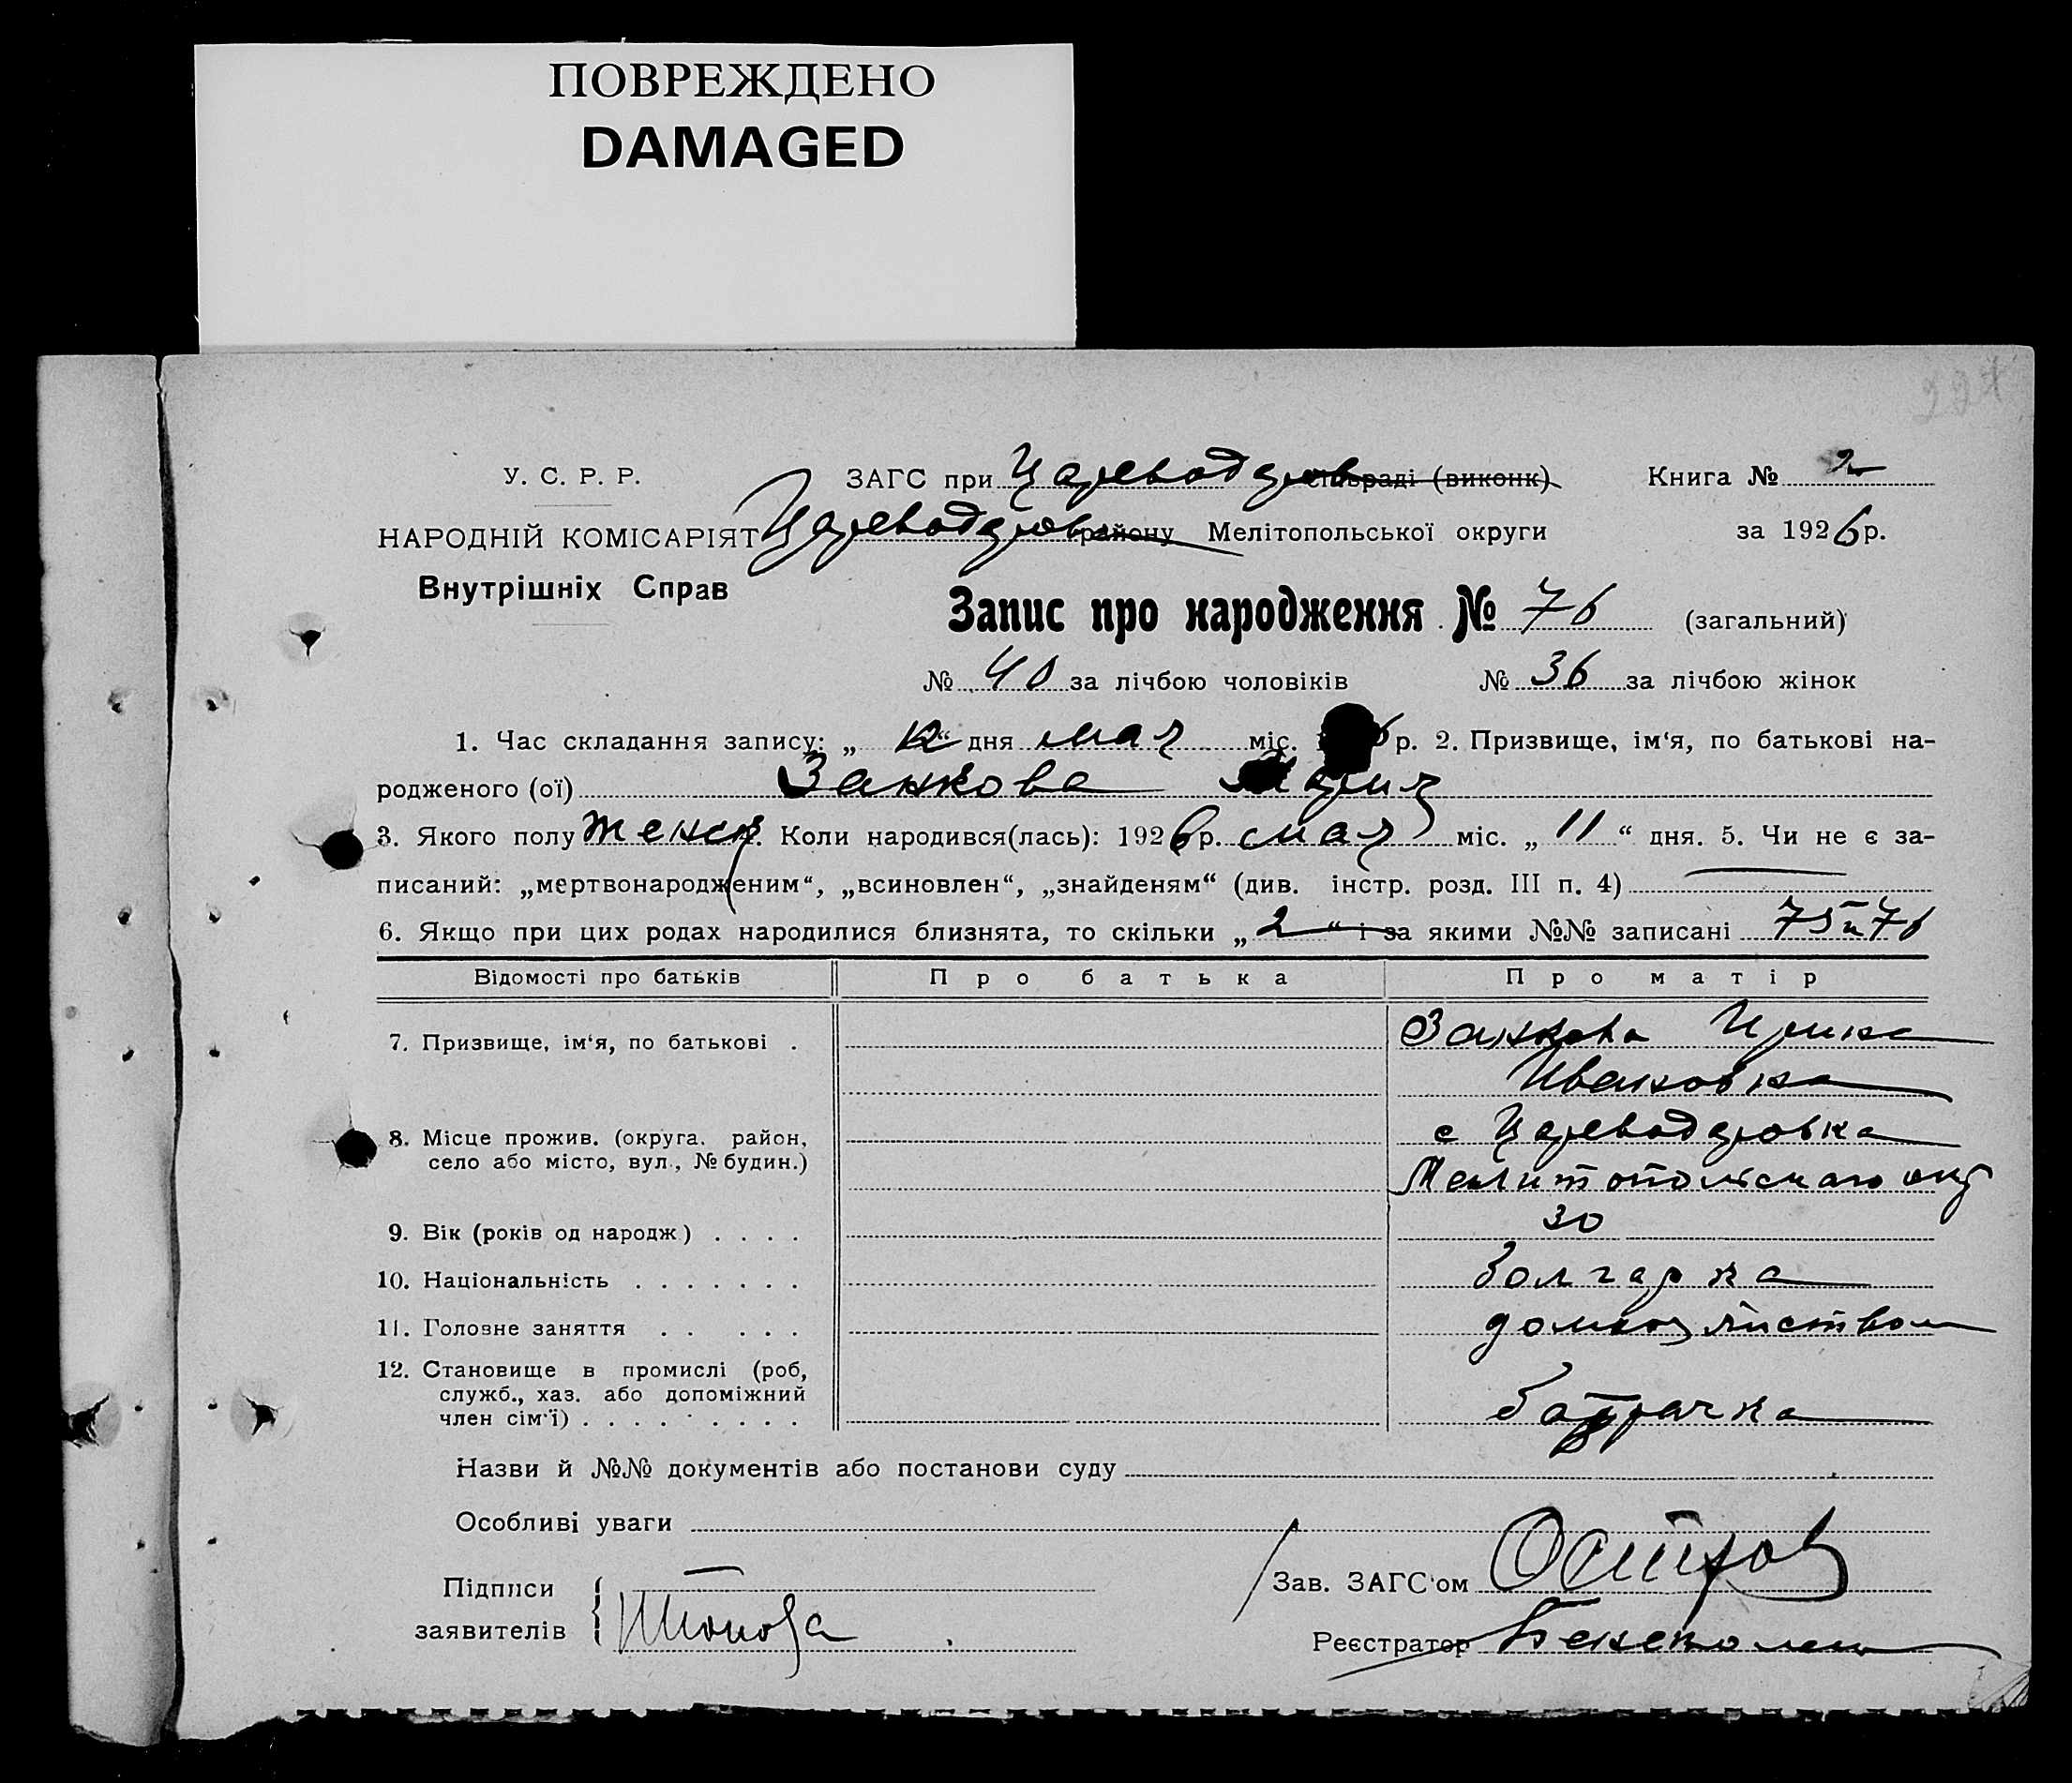 ПОВРЕЖДЕНО
DAMAGED
У. С. Р. Р.
ЗАГС при Цареводаров сільраді (виконк)
Книга № 2
НАРОДНІЙ КОМІСАРІЯТ
Цареводаров району Мелітопольської округи
за 1926 р.
Внутрішніх Справ
Запис про народження № 76 (загальний)
№ 40 за лічбою чоловіків № 36 за лічбою жінок
1. Час складання запису: „ “ дня мая міс. р. 2. Призвище, ім‘я, по батькові на-
родженого (ої) Занкова Мария
3. Якого полу женск 4. Коли народився(лась): 1926 р. мая міс. „11“ дня. 5. Чи не є за-
писаний: „мертвонародженим“, „всиновлен“, „знайденям“ (див. інстр. розд. III п. 4) —
6. Якщо при цих родах народилися близнята, то скільки „2“ і за якими №№ записані 75 и 76
Відомості про батьків Про батька Про матір
7. Призвище, ім‘я, по батькові . Занкова Ирина
Ивановна
8. Місце прожив. (округа, район, с Цареводаровка
село або місто, вул., № будин.) Мелитопольскаго окр
9. Вік (років од народж) . . . . 30
10. Національність . . . . . . . болгарка
11. Головне заняття . . . . . домхозяйством
12. Становище в промислі (роб,
служб., хаз. або допоміжний батрачка
член сім‘ї) . . . . . . . . .
Назви й №№ документів або постанови суду
Особливі уваги
Підписи
Зав. ЗАГС‘ом
заявителів
Реєстратор